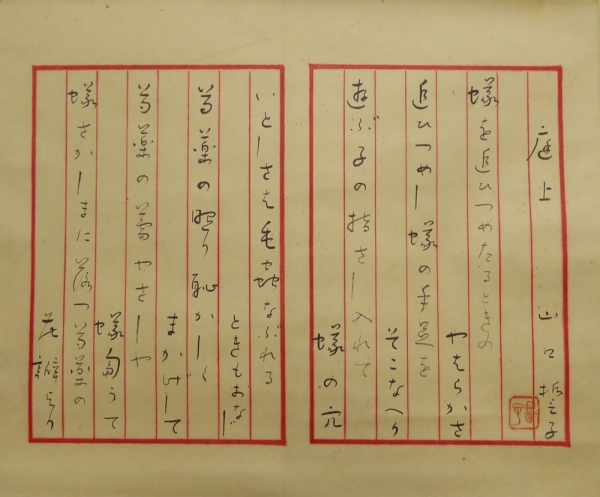 庭上 山口誓子
蟻を追ひつめたるときの
やはらかさ
追ひつめし蟻の手足を
そこなへり
遊ぶ子の指さし入れて
蟻の穴
いとしさは毛虫なぶれる
ときもおなじ
芍薬の照り恥かしく
まかげして
芍薬の蕾やさしや
蟻匂うて
蟻さかしまに落つ芍薬の
花瓣より